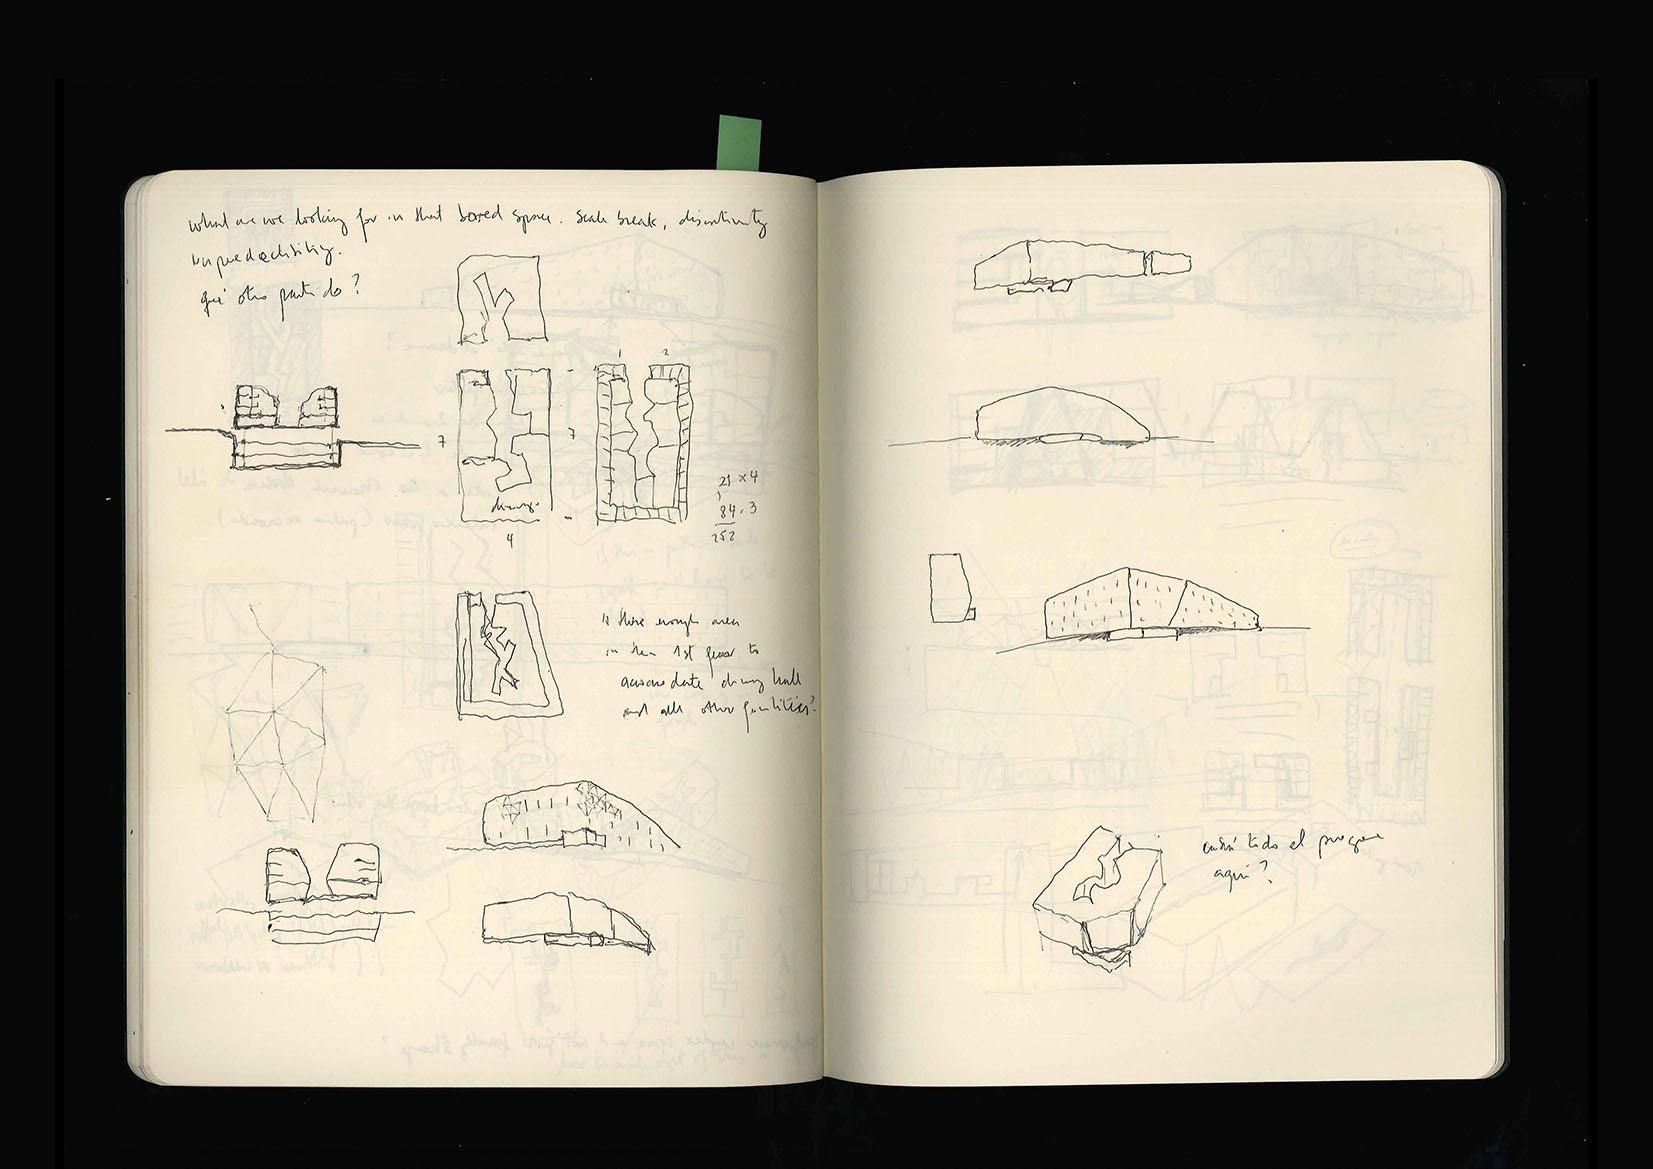 what are we looking for in that bored space. scale break, discontinuity
unpredictibility.
qué otro partido?
1 2
7 7
21 x 4
84.3
252
dining.
4
is there enough area
in the 1st floor to
accomodate dining hall
and all other facilities?
cabrá todo el programa
aquí?